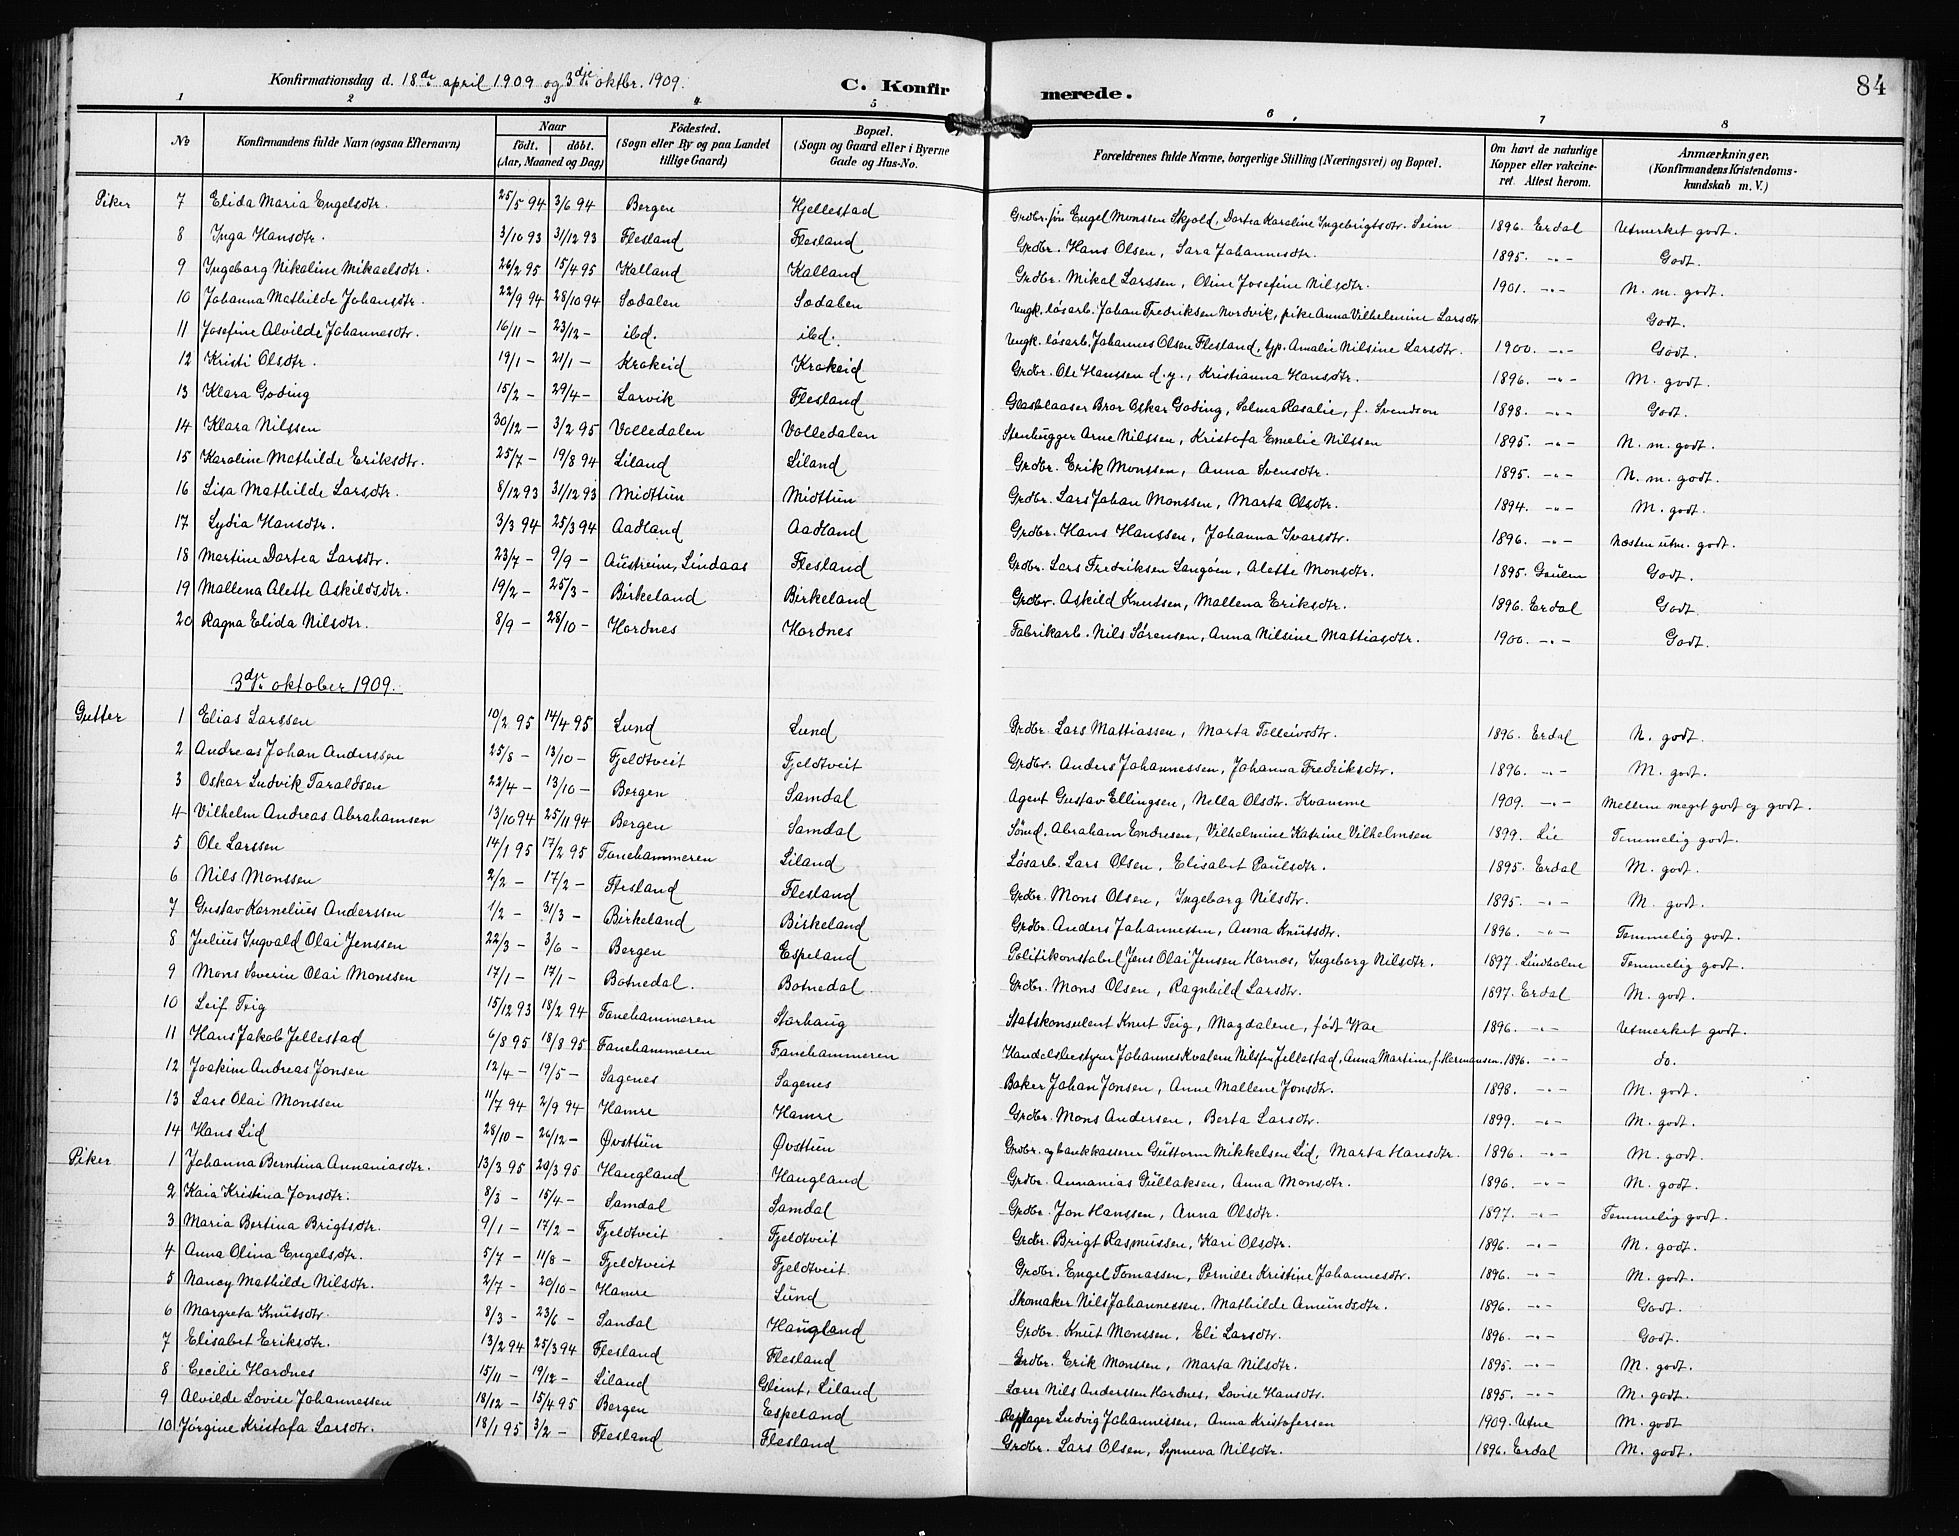 Konfirmationsdag d. 18de april 1909 og 3dje oktbr. 1909.
C. Konfirmerede.
84
1 2 3 4 5 6 7 8
No. | Konfirmandens fulde Navn (ogsaa Efternavn) | Naar født. døbt. (Aar, Maaned og Dag) | Fødested. (Sogn eller By og paa Landet tillige Gaard) | Bopæl. (Sogn og Gaard eller i Byerne Gade og Hus-No. | Forældrenes fulde Navne, borgerlige Stilling (Næringsvei) og Bopæl. | Om havt de naturlige Kopper eller vakcineret. Attest herom. | Anmærkninger. (Konfirmandens Kristendomskundskab m. V.)
Piker 7 Elida Maria Engelsdtr. 25/5 94 3/6 94 Bergen Hjellestad Grdbr.søn Engel Monssen Skjold, Dortea Karoline Ingebrigtsdtr. Seim 1896. Erdal Utmerket godt.
8 Inga Hansdtr. 3/10 93 31/12 93 Flesland Flesland Grdbr. Hans Olsen, Sara Johannesdtr. 1895. -"- Godt.
9 Ingeborg Nikoline Mikaelsdtr. 26/2 95 15/4 95 Kalland Kalland Grdbr. Mikal Larssen, Oline Josefine Nilsdtr. 1901. -"- N. m. godt.
10 Johanna Mathilde Johansdtr. 22/9 94 28/10 94 Sodalen Sodalen Ungk. løsarb. Johan Fredriksen Nordvik, pike Anna Vilhelmine Larsdtr Godt.
11 Josefine Alvilde Johannesdtr. 16/11 - 23/12 - ibd. ibd. Ungk. løsarb. Johannes Olsen Flesland, typ. Amalie Nilsine Larsdtr. 1900. -"- Godt.
12 Kristi Olsdtr. 19/1 - 21/1 - Krokeid Krokeid Grdbr. Ole Hanssen d.y., Kristianna Hansdtr. 1896. -"- M. godt.
13 Klara Goding 15/2 - 29/4 - Larvik Flesland Glasblaaser Bror Oskar Goding, Selma Rosalie, f. Svendson 1898. -"- Godt.
14 Klara Nilssen 30/12 - 3/2 95 Volledalen Volledalen Stenhugger Arne Nilssen, Kristofa Emelie Nilssen 1895. -"- N. m. godt.
15 Karoline Mathilde Eriksdtr. 25/7 - 19/8 94 Liland Liland Grdbr. Erik Monssen, Anna Svensdtr. 1895. -"- N. m. godt.
16 Lisa Mathilde Larsdtr. 8/12 93 31/12 93 Midttun Midttun Grdbr. Lars Johan Monssen, Marta Olsdtr. 1894. -"- M. godt.
17 Lydia Hansdtr. 3/3 94 25/3 94 Aadland Aadland Grdbr. Hans Hanssen, Johanna Ivarsdtr. 1896. -"- Næsten utm. godt.
18 Martine Dortea Larsdtr. 23/7 - 9/9 - Austreim, Lindaas Flesland Grdbr. Lars Fredriksen Langøen, Alette Monsdtr. 1895. Gaulen Godt.
19 Mallena Alette Askildsdtr. 19/2 - 25/3 - Birkeland Birkeland Grdbr. Askild Knutsen, Mallena Eriksdtr. 1896. Erdal Godt.
20 Ragna Elida Nilsdtr. 8/9 - 28/10 - Hordnes Hordnes Fabrikarb. Nils Sørensen, Anna Nilsine Mattiasdtr. 1900. -"- Godt.
3dje oktober 1909.
Gutter 1 Elias Larssen 10/2 95 14/4 95 Lund Lund Grdbr. Lars Mattiassen, Marta Tolleivsdtr. 1896. Erdal N. godt.
2 Andreas Johan Anderssen 25/8 - 13/10 - Fjeldtveit Fjeldtveit Grdbr. Anders Johannessen, Johanna Fredriksdtr. 1896. -"- M. godt.
3 Oskar Ludvik Taraldsen 22/4 - 13/10 - Bergen Samdal Agent Gustav Ellingsen, Nella Olsdtr. Kvamme 1909. -"- Mellem meget godt og godt.
4 Vilhelm Andreas Abrahamsen 13/10 94 25/11 94 Bergen Samdal Sømd. Abraham Endresen, Vilhelmine Katrine Vilhelmsen 1899. Lie Temmelig godt.
5 Ole Larssen 14/1 95 17/2 95 Fanehammeren Liland Løsarb. Lars Olsen, Elisabet Paulsdtr. 1895. Erdal M. godt.
6 Nils Monssen 2/2 - 17/2 - Flesland Flesland Grdbr. Mons Olsen, Ingeborg Nilsdtr. 1895. -"- M. godt.
7 Gustav Kornelius Anderssen 1/2 - 31/3 - Birkeland Birkeland Grdbr. Anders Johannessen, Anna Knutsdtr. 1896. -"- Temmelig godt.
8 Julius Ingvald Olai Jenssen 22/3 - 3/6 - Bergen Espeland Politikonstabel Jens Olai Jensen Hornæs, Ingeborg Nilsdtr. 1897. Lindholm Temmelig godt.
9 Mons Severin Olai Monssen 17/1 - 17/1 - Botnedal. Botnedal. Grdbr. Mons Olsen, Ragnhild Larsdtr. 1897. Erdal M. godt.
10 Leif Teig 15/12 93 18/2 94 Fanehammeren Storhaug Statskonsulent Knut Teig, Magdalene, født Wae 1896. -"- Utmerket godt.
11 Hans Jakob Jellestad 6/8 95 18/8 95 Fanehammeren Fanehammeren Handelsbestyrer Johannes Kvalem Nilssen Jellestad, Anna Martine, f. Hermansen. 1896. -"- do.
12 Joakim Andreas Jonsen 12/4 - 19/5 - Sagenes Sagenes Baker Johan Jonsen, Anne Mallene Jonsdtr. 1898. -"- M. godt.
13 Lars Olai Monssen 11/7 94 2/9 94 Hamre Hamre Grdbr. Mons Andersen, Berta Larsdtr. 1899. -"- M. godt.
14 Hans Lid 28/10 - 26/12 - Øvsttun Øvsttun Grdbr. og bankkasserer Guttorm Mikkelsen Lid, Marta Hansdtr. 1896. -"- M. godt.
Piker 1 Johanna Berntina Annaniasdtr. 13/3 95 20/3 95 Haugland Haugland Grdbr. Annanias Gullaksen, Anna Monsdtr. 1896. -"- M. godt.
2 Kaia Kristina Jonsdtr. 8/3 - 15/4 - Samdal Samdal Grdbr. Jon Hanssen, Anna Olsdtr. 1897. -"- Temmelig godt.
3 Maria Bertina Brigtsdtr. 9/1 - 17/2 - Fjeldtveit Fjeldtveit Grdbr. Brigt Rasmussen, Kari Olsdtr. 1896. -"- M. godt.
4 Anna Olina Engelsdtr. 5/7 - 11/8 - Fjeldtveit Fjeldtveit. Grdbr. Engel Tomassen, Pernille Kristine Johannesdtr. 1896. -"- M. godt.
5 Nancy Mathilde Nilsdtr. 2/7 - 20/10 - Hamre Lund Skomaker Nils Johannessen. Mathilde Amundsdtr. 1896. -"- Godt.
6 Margreta Knutsdtr. 8/3 - 23/6 - Sandal Haugland Grdbr. Knut Monssen, Eli Larsdtr. 1896. -"- Godt.
7 Elisabet Eriksdtr. 13/2 94 25/3 94 Flesland Flesland Grdbr. Erik Monssen, Marta Nilsdtr. 1895. -"- M. godt.
8 Cecilie Hordnes 15/11 - 19/12 - Liland Glimt, Liland Lærer Nils Anderssen Hordnes, Lovise Hansdtr. 1895. -"- M. godt.
9 Alvilde Lovise Johannessen 18/12 - 15/4 95 Bergen Espeland Repslager Ludvig Johannessen, Anna Kristofersen 1909. Utne M. godt
10 Jørgine Kristofa Larsdtr. 18/1 95 3/2 - Flesland Flesland Grdbr. Lars Olsen, Synneva Nilsdtr. 1896. Erdal M. godt.